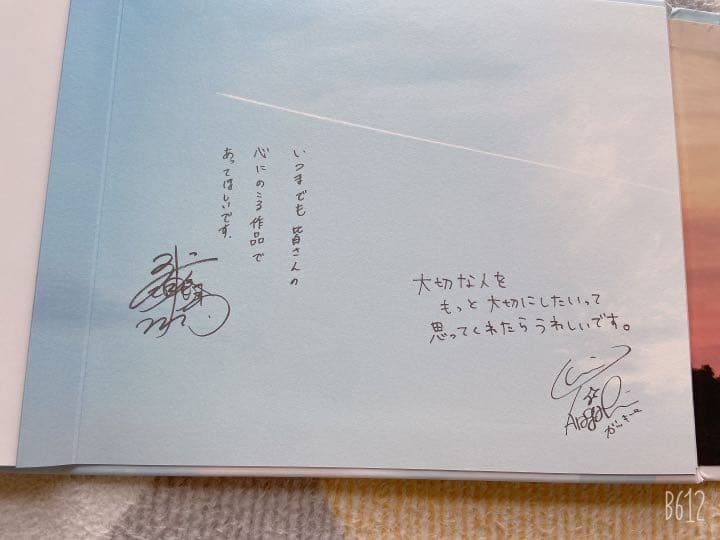 いつまでも 皆さんの
心にのこる作品で
あってほしいです。
大切な人を
もっと大切にしたいって
思ってくれたらうれしいです。
がっきー
B612